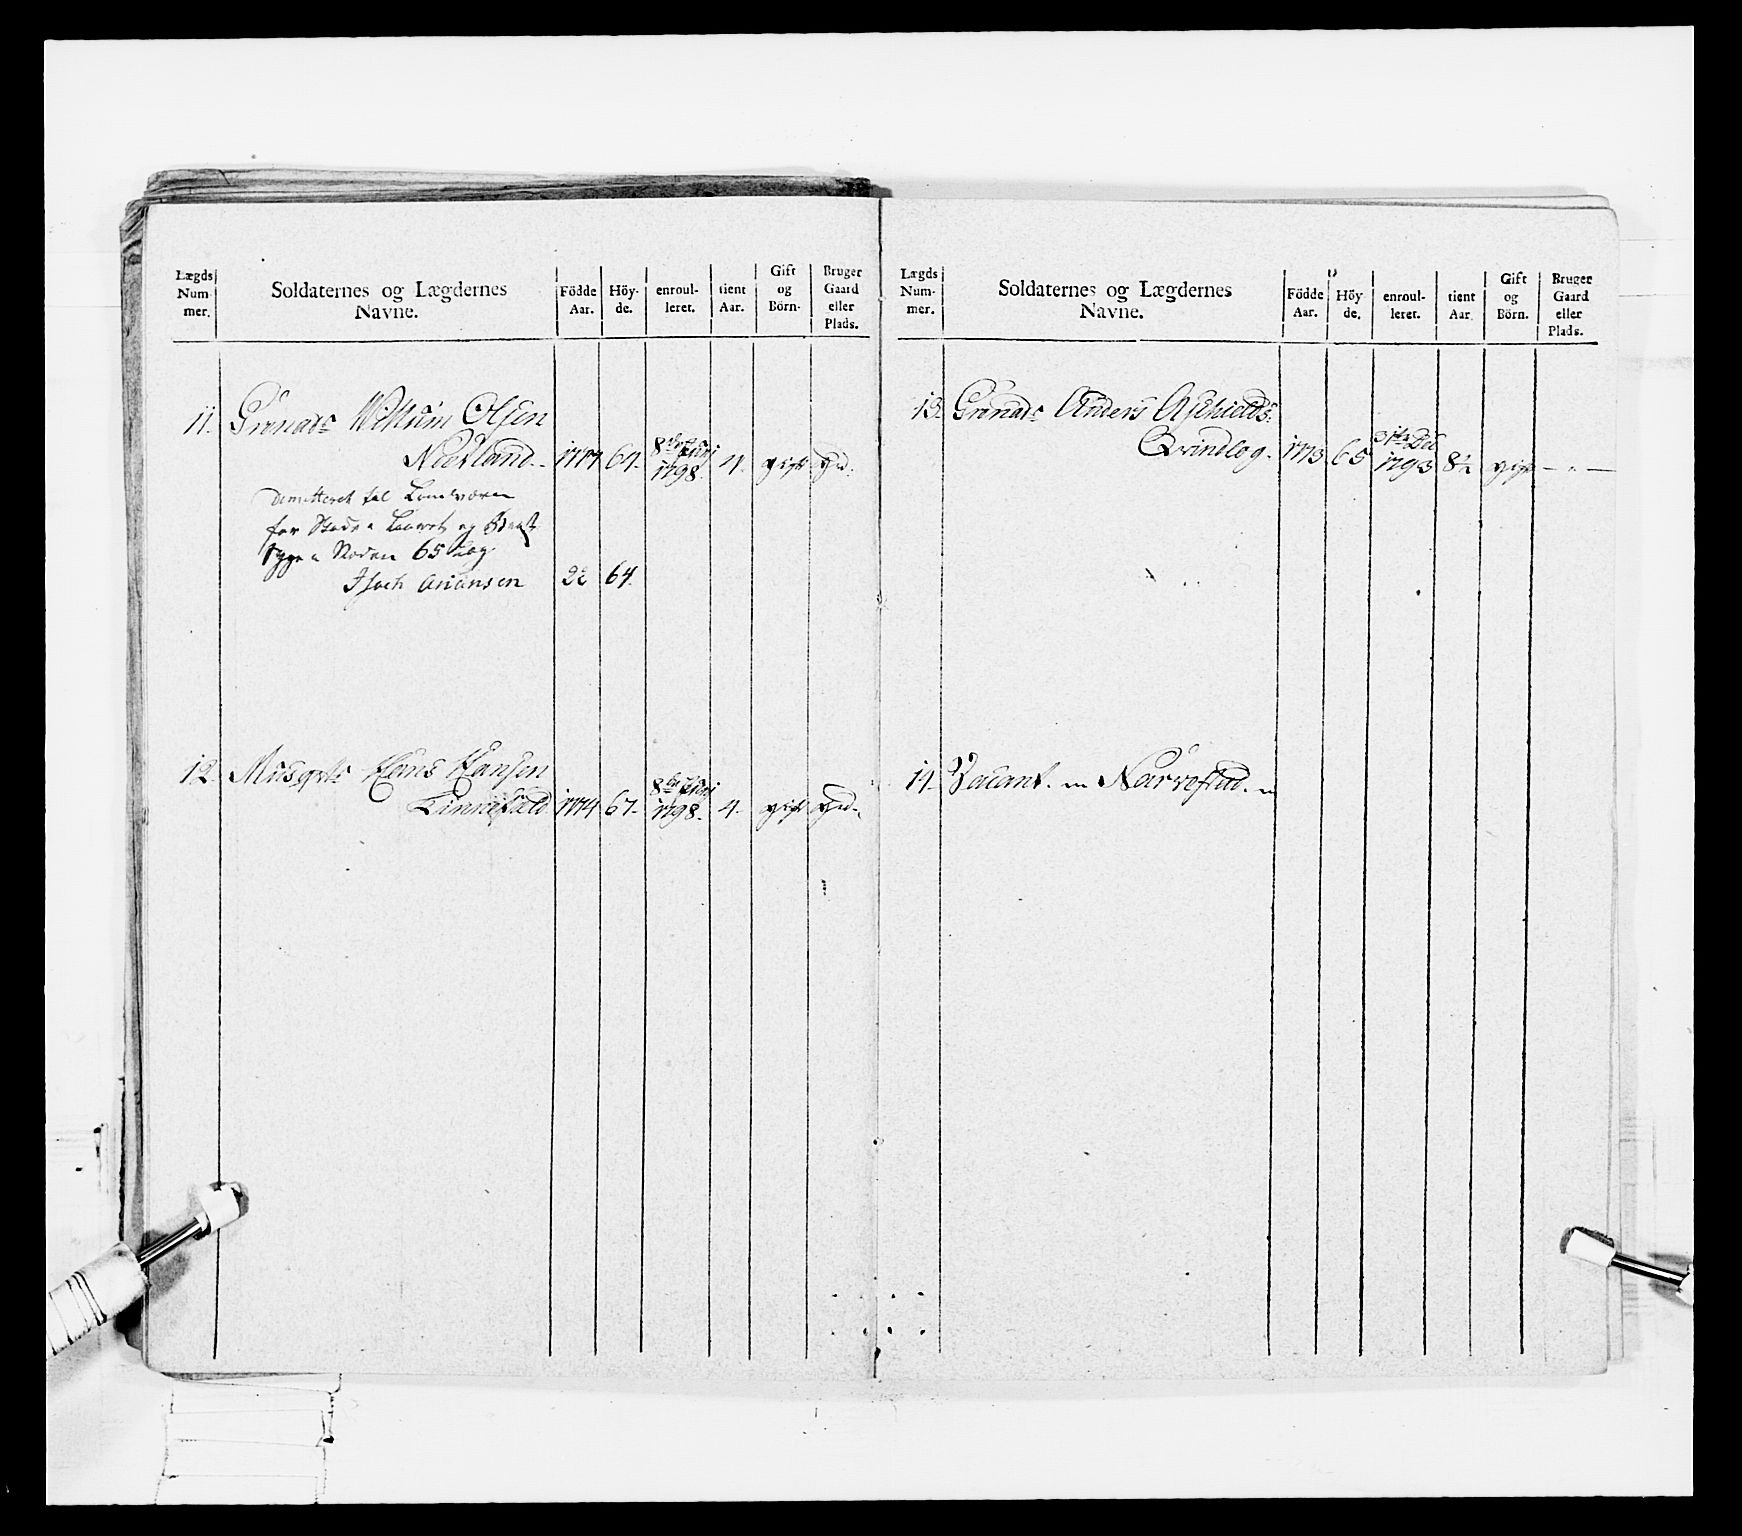 Lægds Num- mer.
Soldaternes og Lægdernes Navne.
Födde Aar.
Höy- de.
enroul- leret.
tient Aar.
Gift og Börn.
Bruger Gaard eller Plads.
11. Grenadr Willum Olsen
Nedland. 1774 64. 8de Juni 1798. 4. gift
Demitteret til Landværn
for Skade i Laaret og
65 Tog
Isach Ariansen 22 64.
12. Musqvtr Hans Hansen
1774 67. 8de Juni 1798. 4. gift
Lægds Num- mer.
Soldaternes og Lægdernes Navne.
Födde Aar.
Höy de.
enroul- leret.
tient Aar
Gift og Börn.
Bruger Gaard eller Plads.
13. Grenadr Anders
Qvindlog. 1773 65 Dec 1793 8½ gift — " —
14. Vacant.